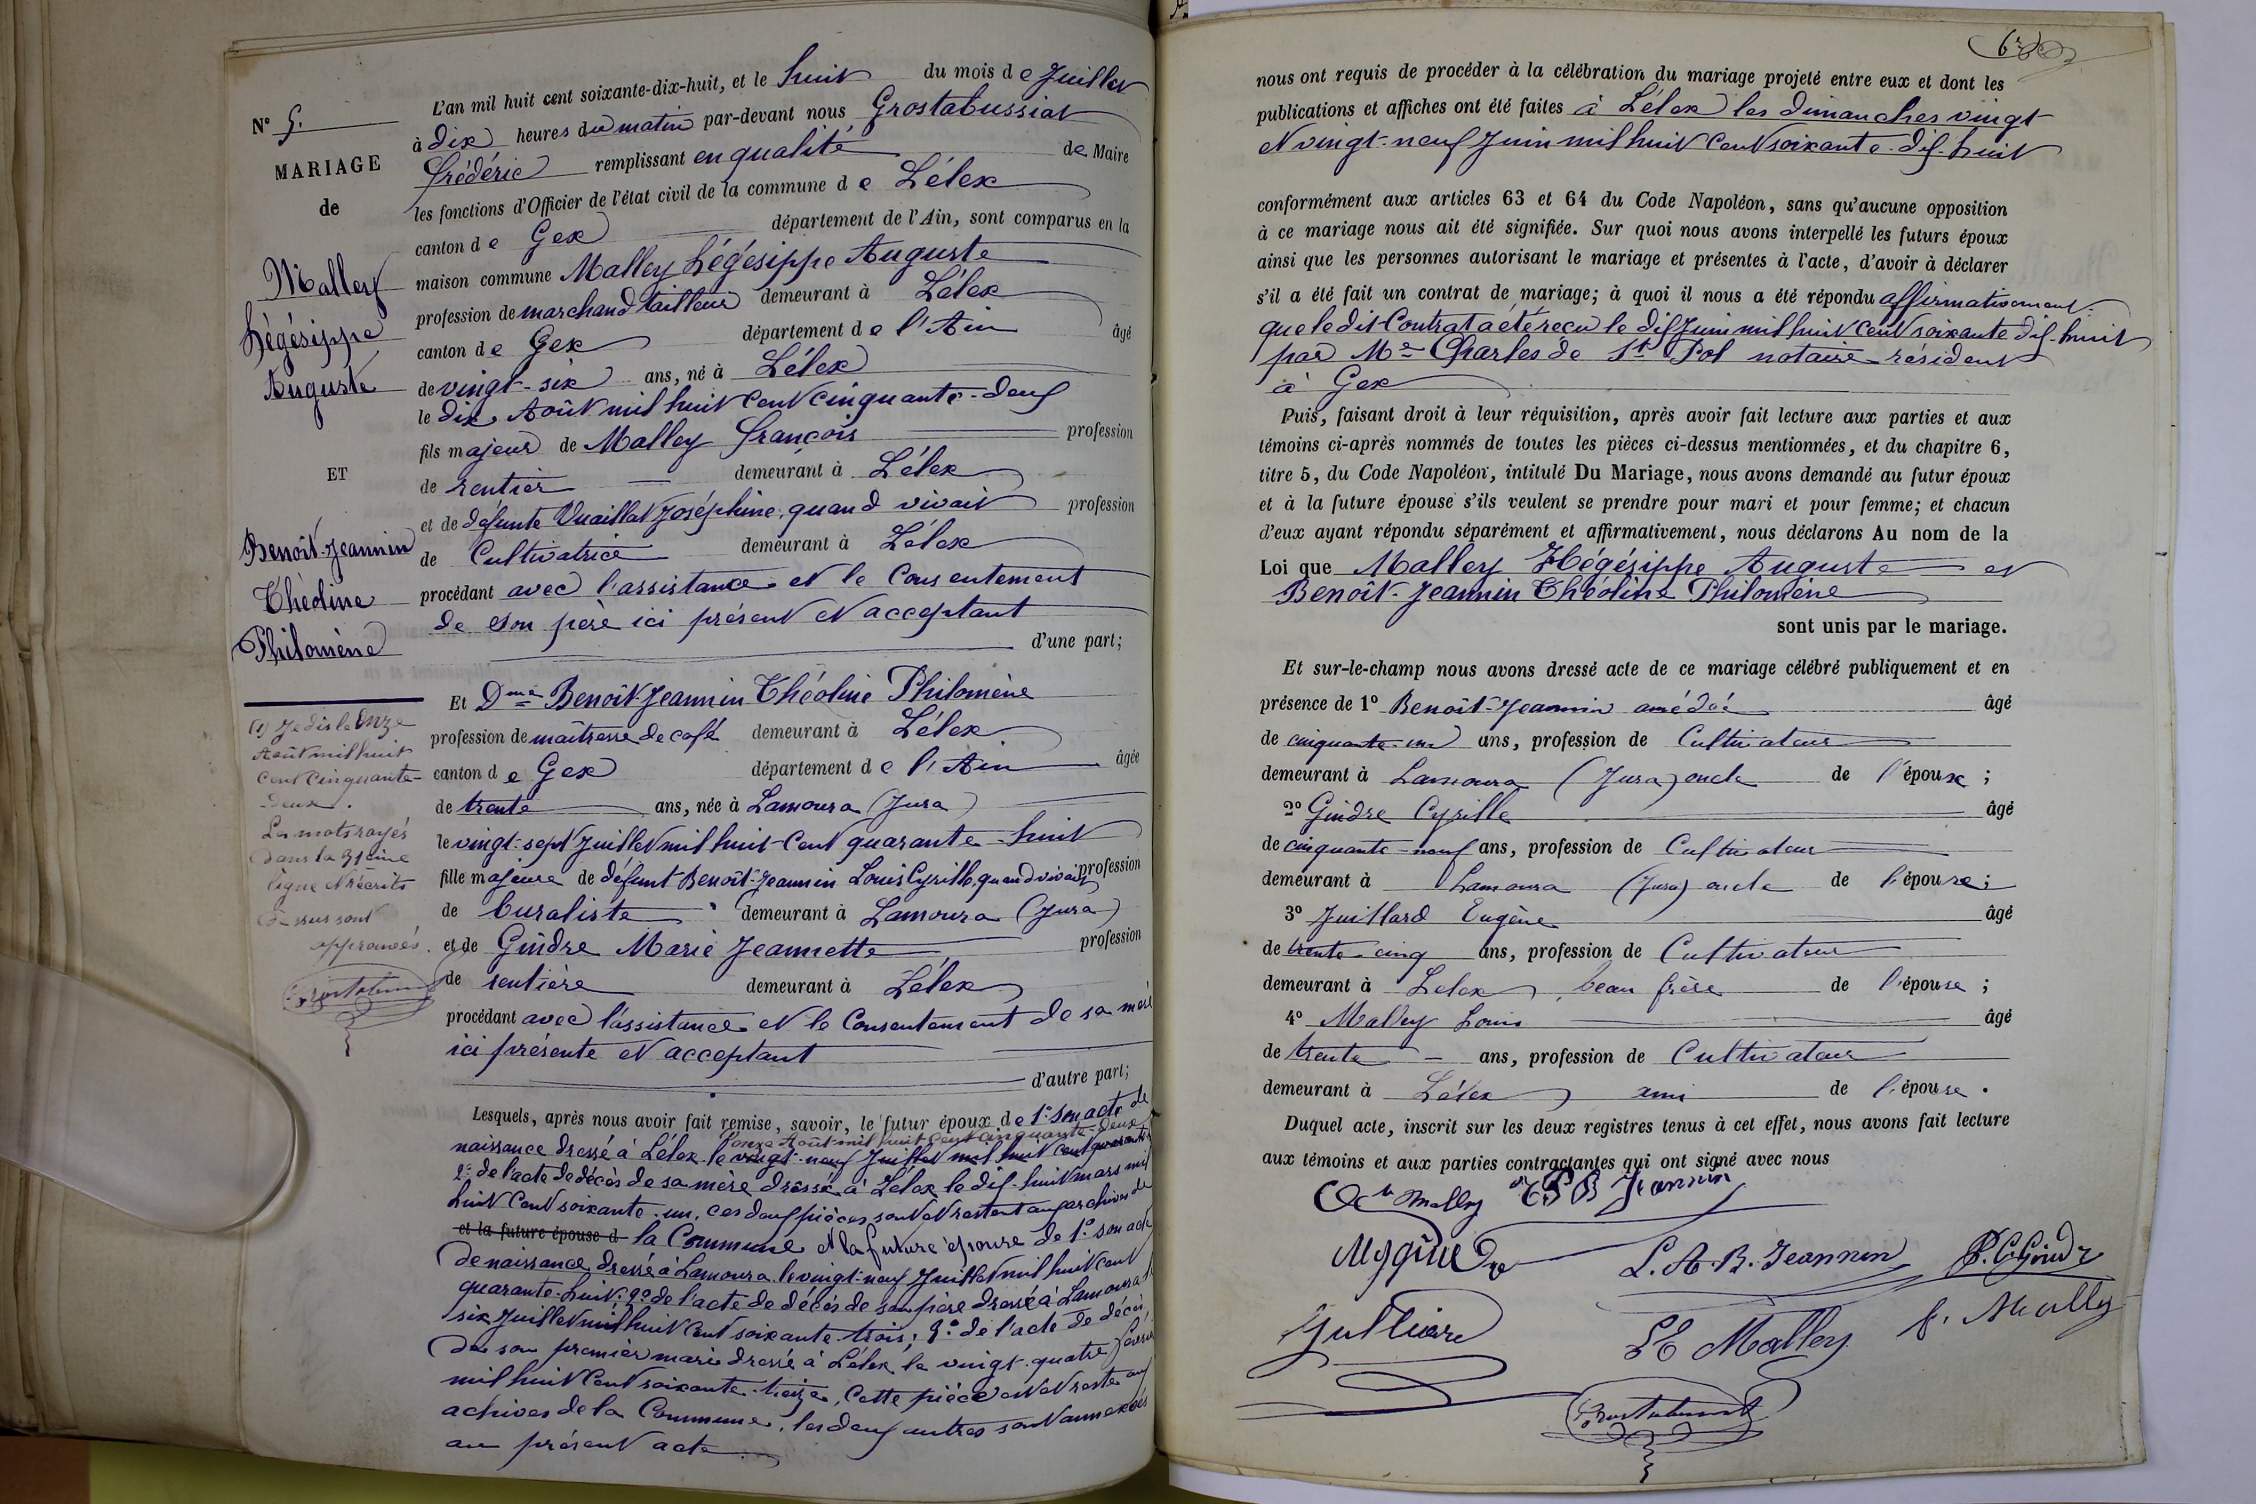 L'an mil huit cent soixante-dix-huit, et le huit du mois de Juillet
à dix heures du matin par-devant nous Grostabussiat
Frédéric remplissant en qualité de Maire
les fonctions d'Officier de l'état civil de la commune de Lélex
canton de Gex département de l'Ain, sont comparus en la
maison commune Malley hégésippe Auguste
profession de marchand tailleur demeurant à Lélex
canton de Gex département de l'Ain âgé
de vingt-six ans, né à Lélex
le dix Août mil huit cent cinquante-deux
fils majeur de Malley François profession
de rentier demeurant à Lélex
et de défunte Vuaillat Joséphine, quand vivait profession
de Cultivatrice demeurant à Lélex
procédant avec l'assistance et le Consentement
de son père ici présent et acceptant
d'une part;
Et Dme Benoît-Jeannin Théoline Philomène
profession de maîtresse de café demeurant à Lélex
canton de Gex département de l'Ain âgée
de trente ans, née à Lamoura (Jura)
le vingt-sept Juillet mil huit-cent quarante-huit
fille majeure de défunt Benoît-Jeannin Louis Cyrille, quand vivait profession
de buraliste demeurant à Lamoura (Jura)
et de Gindre Marie Jeannette profession
de rentière demeurant à Lélex
procédant avec l'assistance et le Consentement de sa mère
ici présente et acceptant
d'autre part;
Lesquels, après nous avoir fait remise, savoir, le futur époux de 1° son acte de
l'onze Août mil huit cent cinquante-deux
naissance dressé à Lélex le vingt-neuf Juillet mil huit cent quarante
2° de l'acte de décès de sa mère dressé à Lélex le dix-huit mars mil
huit cent soixante-un, ces deux pièces sont et restent aux archives de
et la future épouse d la Commune et la future épouse de 1° son acte
de naissance dressé à Lamoura le vingt-neuf Juillet mil huit cent
quarante-huit; 2° de l'acte de décès de son père dressé à Lamoura le
six Juillet mil huit cent soixante-trois; 3° de l'acte de décès
de son premier mari dressé à Lélex le vingt-quatre février
mil huit cent soixante-treize, Cette pièce est et reste aux
achives de la Commune, les deux autres sont annexées
au présent acte.
N° 9.
MARIAGE
de
Malley
hégésippe
Auguste
ET
Benoît-Jeannin
Théoline
Philomène
(1) Je dis le Onze
Août mil huit
cent cinquante-
deux.
Les mots rayés
dans la 31ème
ligne et récrits
dessus sont
approuvés.
Grostabussiat
6
nous ont requis de procéder à la célébration du mariage projeté entre eux et dont les
publications et affiches ont été faites à Lélex les dimanches vingt
et vingt-neuf Juin mil huit cent soixante-dix-huit
conformément aux articles 63 et 64 du Code Napoléon, sans qu'aucune opposition
à ce mariage nous ait été signifiée. Sur quoi nous avons interpellé les futurs époux
ainsi que les personnes autorisant le mariage et présentes à l'acte, d'avoir à déclarer
s'il a été fait un contrat de mariage; à quoi il nous a été répondu affirmativement
que le dit Contrat a été reçu le dix Juin mil huit cent soixante dix-huit
par Me Charles de St Pol notaire résident
à Gex
Puis, faisant droit à leur réquisition, après avoir fait lecture aux parties et aux
témoins ci-après nommés de toutes les pièces ci-dessus mentionnées, et du chapitre 6,
titre 5, du Code Napoléon, intitulé Du Mariage, nous avons demandé au futur époux
et à la future épouse s'ils veulent se prendre pour mari et pour femme; et chacun
d'eux ayant répondu séparément et affirmativement, nous déclarons Au nom de la
Loi que Malley Hégésippe Auguste et
Benoît-Jeannin Théoline Philomène
sont unis par le mariage.
Et sur-le-champ nous avons dressé acte de ce mariage célébré publiquement et en
présence de 1° Benoît-Jeannin amédée âgé
de cinquante-un ans, profession de Cultivateur
demeurant à Lamoura (Jura) oncle de l'épouse;
2° Gindre Cyrille âgé
de cinquante-neuf ans, profession de Cultivateur
demeurant à Lamoura (Jura) oncle de l'épouse;
3° Juillard Eugène âgé
de trente-cinq ans, profession de Cultivateur
demeurant à Lelex, beau frère de l'épouse;
4° Malley Louis âgé
de trente ans, profession de Cultivateur
demeurant à Lélex ami de l'épouse.
Duquel acte, inscrit sur les deux registres tenus à cet effet, nous avons fait lecture
aux témoins et aux parties contractantes qui ont signé avec nous
Malley B Jeannin
L. A. B. Jeannin
Malley
Malley
Grostabussiat